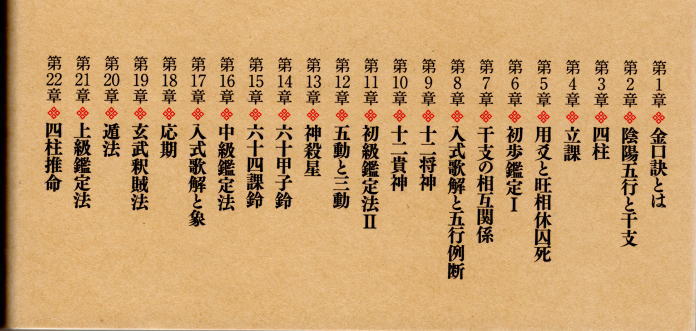 第1章 金口訣とは
第2章 陰陽五行と干支
第3章 四柱
第4章 立課
第5章 用爻と旺相休囚死
第6章 初歩鑑定Ⅰ
第7章 干支の相互関係
第8章 入式歌解と五行例断
第9章 十二将神
第10章 十二貴神
第11章 初級鑑定法Ⅱ
第12章 五動と三動
第13章 神殺星
第14章 六十甲子鈴
第15章 六十四課鈴
第16章 中級鑑定法
第17章 入式歌解と象
第18章 応期
第19章 玄武釈賊法
第20章 遁法
第21章 上級鑑定法
第22章 四柱推命